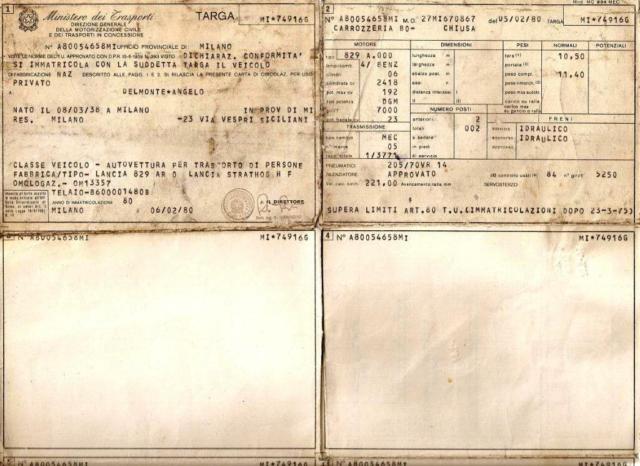 1
Ministero dei Trasporti
DIREZIONE GENERALE
DELLA MOTORIZZAZIONE CIVILE
E DEI TRASPORTI IN CONCESSIONE
TARGA
MI*74916G
N° A80054658MI UFFICIO PROVINCIALE DI MILANO
DICHIARAZ. CONFORMITA'
SI IMMATRICOLA CON LA SUDDETTA TARGA IL VEICOLO
NAZ DESCRITTO ALLE PAGG. 1 E 2. SI RILASCIA LA PRESENTE CARTA DI CIRCOLAZ. PER USO
PRIVATO
DELMONTE*ANGELO
NATO IL 08/03/38 A MILANO IN PROV DI MI
RES. MILANO -23 VIA VESPRI SICILIANI
CLASSE VEICOLO - AUTOVETTURA PER TRASPORTO DI PERSONE
FABBRICA/TIPO- LANCIA 829 AR 0 LANCIA STRATHOS H F
OMOLOGAZ.- OM13357
TELAIO-860000T480B
ANNO DI IMMATRICOLAZIONE 80
MILANO 06/02/80
IL DIRETTORE
2
N° A80054658MI M.O. 27MI670867 del 05/02/80 TARGA MI*74916G
CARROZZERIA 80- CHIUSA
MOTORE DIMENSIONI PESI NORMALI POTENZIALI
tipo 829 A.000 lunghezza m tara 10,50
4/ BENZ larghezza m portata
cilindri 06 peso compl. 11,40
cilindrata 2418
192
DGM NUMERO POSTI
7000 anteriori 2 FRENI
TRASMISSIONE totali 002 servizio IDRAULICO
MEC soccorso IDRAULICO
05 in piedi
di servizio
PNEUMATICI 205/70VR 14
SILENZIATORE APPROVATO 84 5250
221.00 SERVOSTERZO
SUPERA LIMITI ART.60 T.U.(IMMATRICOLAZIONI DOPO 23-3-75)
3 N° A80054658MI MI*74916G
4 N° A80054658MI MI*74916G